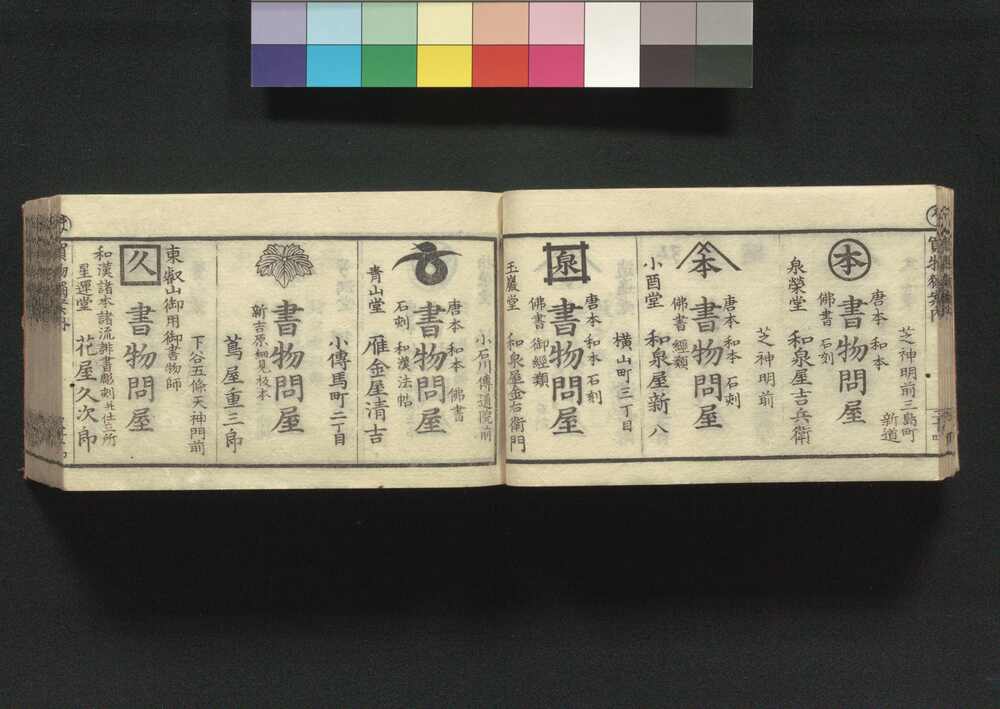 芝神明前三島町
新道
本
唐本 和本
書物問屋
佛書 石刻
和泉屋吉兵衛
泉榮堂
芝神明前
本
唐本 和本 石刻
書物問屋
佛書 經類
和泉屋新八
小酉堂
横山町三丁目
泉
唐本 和本 石刻
書物問屋
佛書 御經類
和泉屋金右衛門
玉巖堂
小石川傳通院前
唐本 和本 佛書
書物問屋
石刻 和漢法帖
雁金屋清吉
青山堂
小傳馬町二丁目
書物問屋
新吉原細見板本
蔦屋重三郎
下谷五條天神門前
東叡山御用御書物師
久
書物問屋
和漢諸本諸流誹書彫刻并仕立所
花屋久次郎
星運堂